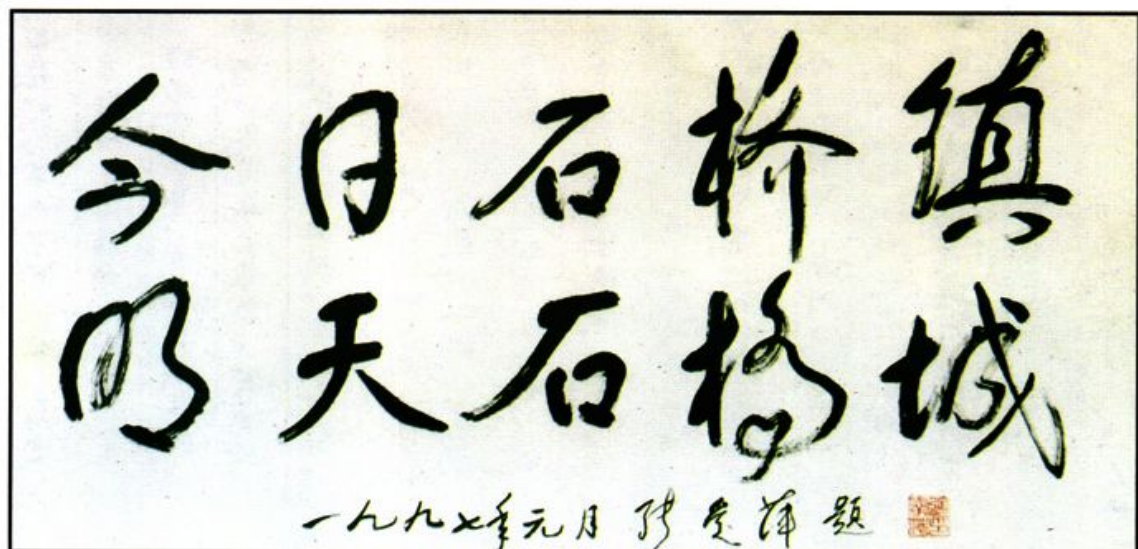 今日石桥镇
明天石橋城
一九九七年元月 张爱萍 题